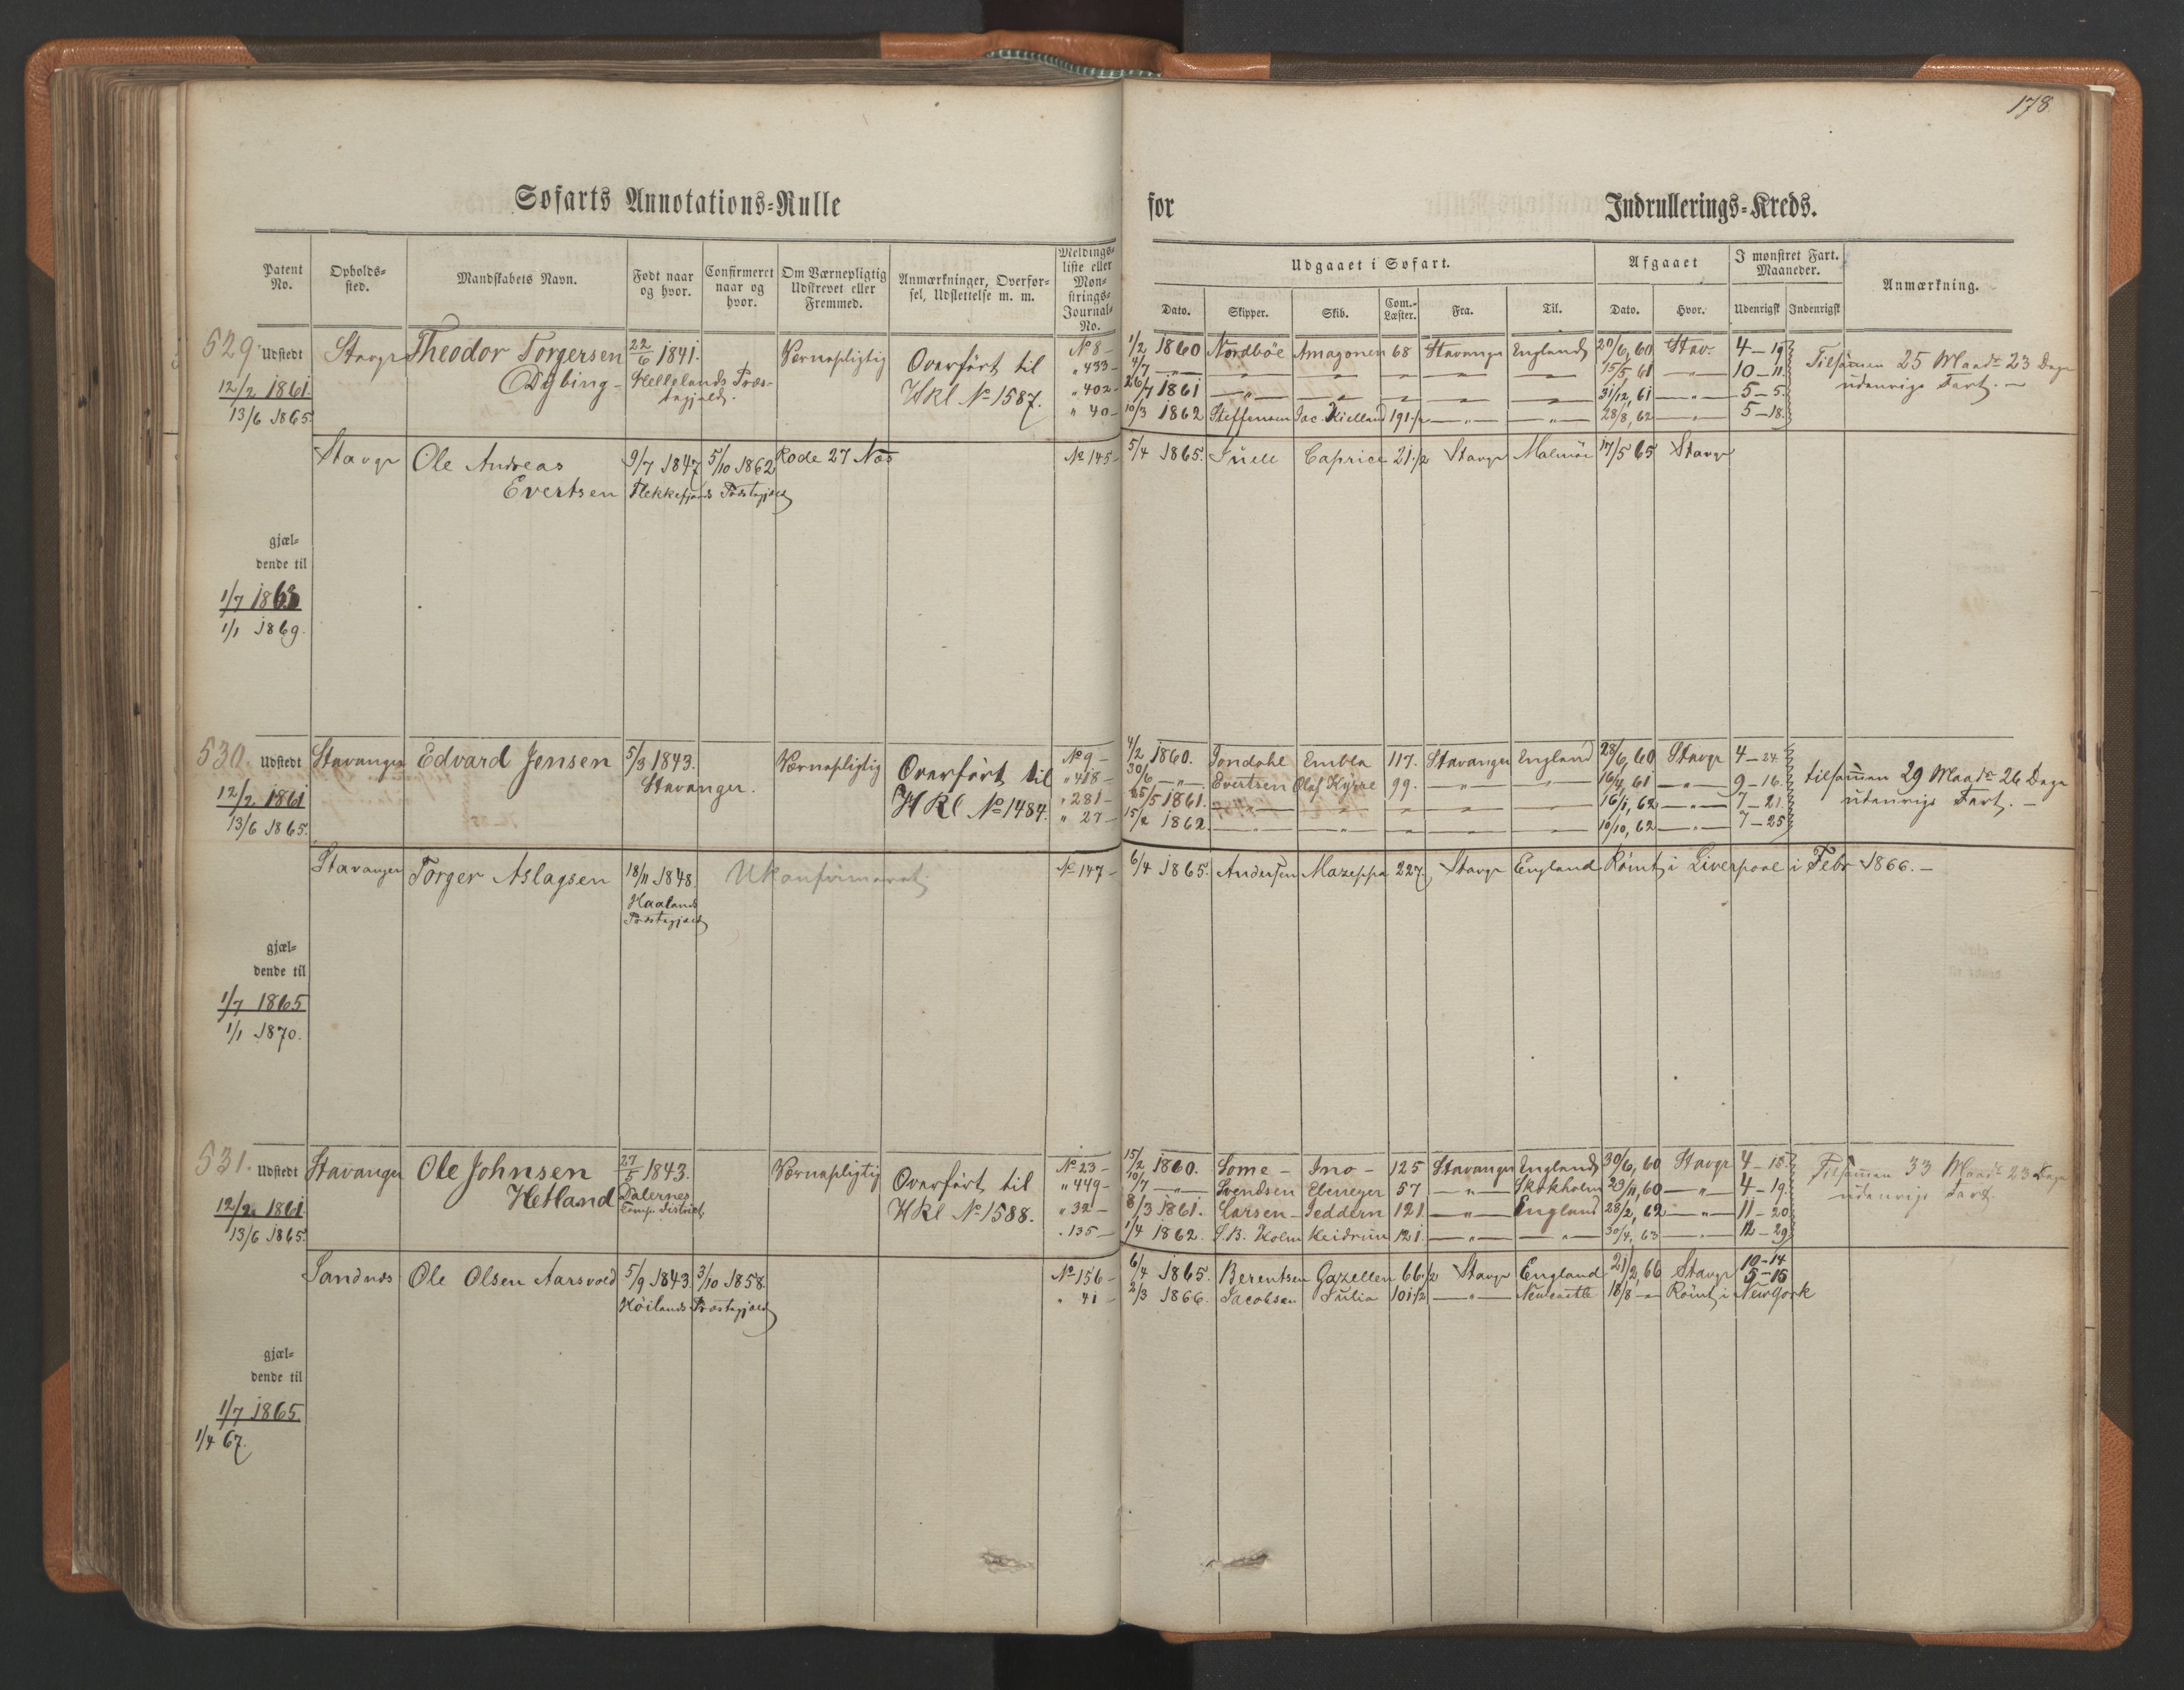 178
Søfarts Annotations-Rulle for Indrullerings-Kreds.
Patent No. | Opholds-sted. | Mandskabets Navn. | Født naar og hvor. | Confirmeret naar og hvor. | Om Værnepligtig Udskrevet eller Fremmed. | Anmærkninger, Overførsel, Udslettelse m. m. | Meldings-liste eller Mønstrings-Journal-No. | Udgaaet i Søfart. | Afgaaet | I mønstret Fart. Maaneder. | Anmærkning.
Dato. | Skipper. | Skib. | Com.-Læster. | Fra. | Til. | Dato. | Hvor. | Udenrigsk | Indenrigsk
529 Udstedt Stavgr Theodor Torgersen 22/6 1841. Værnepligtig Overført til No 8 — 1/2 1860 Nordböe Amagonen 68 Stavanger England 20/6, 60 Stav. 4 — 19
12/2 1861. Dybing - Hellelands Præs- HKl No 1587. " 433 — 4/7 — " — 15/5 61 — " — 10 — 11 Tilsamen 25 Maadr 23 Dage
13/6 1865. tegjeld. " 402 — 26/7 1861 — " — 31/12, 61 — " — 5 — 5 udenrigs Fart. —
" 40 — 10/3 1862 Steffensen Jac. Kielland 191 1/2 — " — 28/8, 62 — " — 5 — 18
Stavgr Ole Andreas 9/7 1847 5/10 1862 Rode 27 Næs No 145 — 5/4 1865. Juell Caprice 21 1/2 Stavgr Malmöe 17/5 65 Stavgr
Evertsen Flekkefjords Præstegjæld
gjæl-
dende til
1/7 1863
1/1 1869.
530. Udstedt Stavanger Edvard Jensen 5/3 1843. Værnepligtig Overført til No 9 — 4/2 1860. Tondahl Embla 117. Stavanger England 28/6, 60 Stavgr 4 — 24
12/2 1861 Stavanger. HKl No 1484. " 418 — 30/6 — " — Evertsen Olaf Kyrre 99. — " — 16/4, 61 — " — 9 — 16 tilsamen 29 Maadr 26 Dage
13/6 1865. " 281 — 15/5 1861. — " — 16/1, 62 — " — 7 — 21 udenrigs Fart. —
" 27 — 15/2 1862. — " — 10/10, 62 — " — 7 — 25
Stavanger Torger Aslagsen 18/11 1848. Ukonfirmeret. No 147 — 6/4 1865. Andersen Mazeppa 227. Stavgr England Römt i Liverpool i Febr 1866. —
Haalands
Præstegjæld
gjæl-
dende til
1/7 1865
1/1 1870.
531. Udstedt Stavanger Ole Johnsen 27/5 1843. Værnepligtig Overført til No 23 — 15/2 1860. Lome - Ino - 125 Stavanger England 30/6, 60 Stavgr 4 — 15
12/2 1861 Hetland Dalernes HKl No 1588. " 449 — 10/7 — " — Svendsen Ebenezer 57 — " — Stokholm 29/11, 60 — " — 4 — 19 Tilsamen 33 Maadr 23 Dage
13/6 1865. Comp. District. " 32 — 8/3 1861. Larsen - Jeddern 121 — " — England 28/2, 62 — " — 11 — 20 udenrigs Fart.
" 135 — 1/4 1862. S.B. Holm Heidrun 121. — " — 30/4, 63 — " — 12 — 29
Sandnæs Ole Olsen Aarsvold 5/9 1843 3/10 1858. No 156 — 6/4 1865. Berentsen Gazellen 66 1/2 Stavgr England 21/2, 66 Stavgr 10 — 14
Höilands Præstegjæld " 41 — 2/3 1866. Jacobsen Julia 101 1/2 — " — Newcastle 18/8 — " Römt i New York 5 — 15
gjæl-
dende til
1/7 1865
1/4 67.